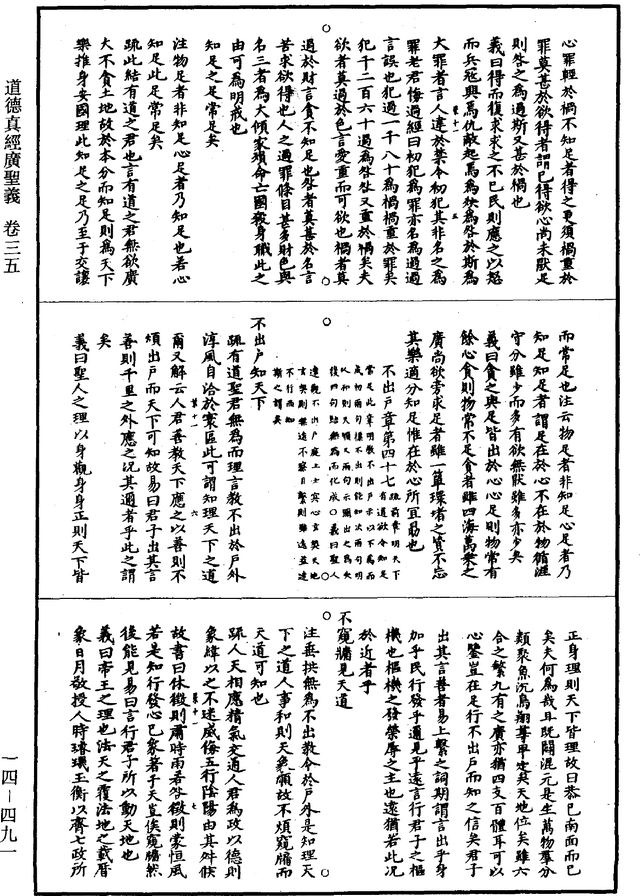 心罪輕於禍不知足者得之更須禍重於
罪莫甚於欲得者謂已得欲心尚未猒足
則咎之為過斯又甚於禍也
義曰得而復求求之不已民則應之以怒
而兵寇興焉仇敵起焉為殃為咎於斯為
大罪者言人違於禁令初犯其非名之為
罪老君悔過經曰初犯為罪亦名為過過
言誤也犯過一千八十為禍禍重於罪矣
犯千二百六十過為咎咎又重於禍矣夫
欲者莫過於色言愛重而可欲也禍者莫
過於財言貪不知足也咎者莫甚於名言
苦求欲得也人之過罪條目甚多財色與
名三者為大傾家殞命亡國殺身職此之
由可為明戒也
知足之足常足矣
注物足者非知足心足者乃知足也若心
知足此足常足矣
疏此結有道之君也言有道之君無欲廣
大不貪土地故於本分而知足則為天下
樂推身安國理此知足之足乃至于交讓
而常足也注云物足者非知足心足者乃
知足知足者謂足在於心不在於物循涯
守分雖少而多有欲無猒雖多亦少矣
義曰貪之與足皆出於心心足則物常有
餘心貪則物常不足貪者雖四海萬乘之
廣尚欲旁求足者雖一簞環堵之資不忘
其樂適分知足惟在於心所宜勗也
不出戶章第四十七
不出戶知天下
疏有道聖君無為而理言教不出於戶外
淳風自洽於寰區此可謂知理天下之道
爾又解云人君善教天下應之以善則不
煩出戶而天下可知故易曰君子出其言
善則千里之外應之況其邇者乎此之謂
矣
義曰聖人之理以身觀身身正則天下皆
正身理則天下皆理故曰恭己南面而已
矣夫何為哉且既闢混元是生萬物羣分
類聚魚沉鳥翔蕐卑定矣天地位矣雖六
合之繁九有之廣亦猶四支百體耳可以
心鑒豈在足行不出戶而知之信矣君子
出其言善者易上繫之詞期謂言出乎身
加乎民行發乎邇見乎遠言行君子之樞
機也樞機之發榮辱之主也遠猶若此況
於近者乎
不窺牖見天道
注垂拱無為不出教令於戶外是知理天
下之道人事和則天氣順故不煩窺牖而
天道可知也
疏人天相應精氣交通人君為政以德則
象緯以之不迷威侮五行陰陽由其舛候
故書曰休徵則肅時雨若咎徵則蒙恒風
若是知行發心已象著于天豈俟窺牖然
後能見易曰言行君子所以動天地也
義曰帝王之理也法天之覆法地之載曆
象日月敬授人時璿璣玉衡以齊七政所
道德真經廣聖義 卷三五
一四－四九一